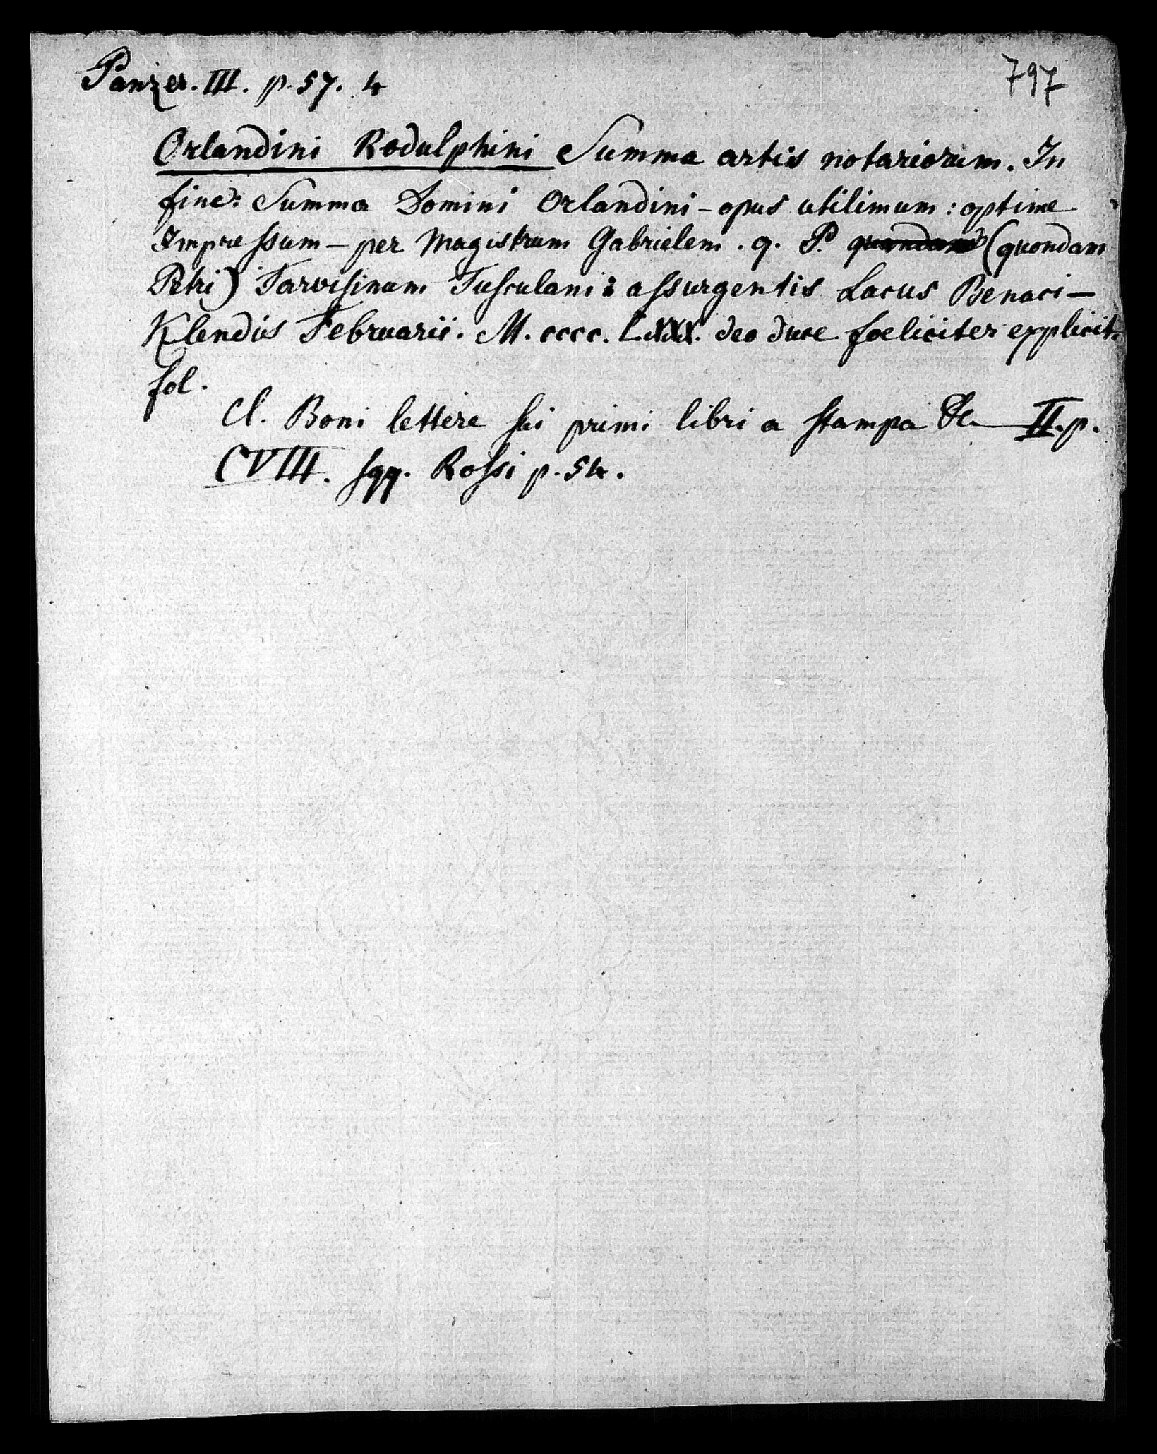 Panzer. III. p. 57. 4
797
Orlandini Rodulphini Summa artis notariorum. In
fine: Summa Domini Orlandini – opus utilimum : optime
Impressum – per Magistrum Gabrielem . q. P. quondam (quondam
Petri) Tarvisinum Tusculani : assurgentis Lacus Benaci –
Klendis Februarii. M. cccc. LXXX. deo duce foeliciter explicit.
fol.
Cl. Boni lettere sui primi libri a stampa &c. II. p.
CVIII. sqq. Rossi p. 54.